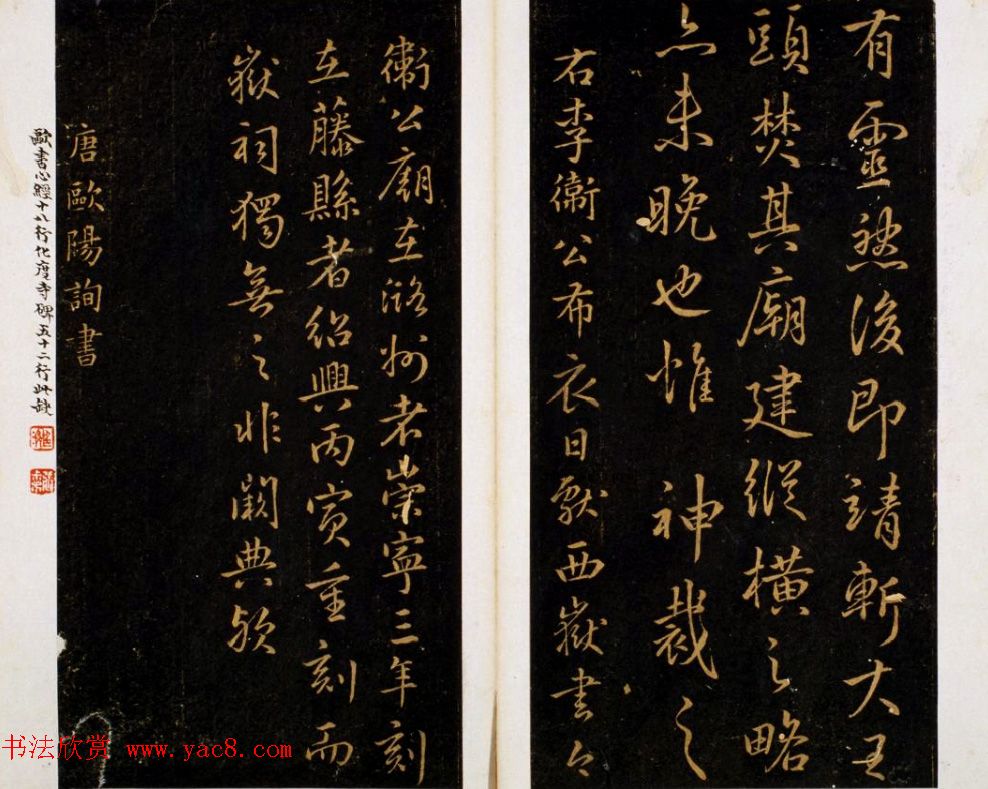 有靈然後即請斬大王
頭焚其廟建縱橫之略
亦未晚也惟神裁之
右李衛公布衣日獻西嶽書今
衛公廟在潞州者崇寧三年刻
在藤縣者紹興丙寅重刻而
嶽祠獨無之非闕典歟
唐歐陽詢書
歐書心經十八行化度寺碑五十二行此缺
书法欣赏 www.yac8.com